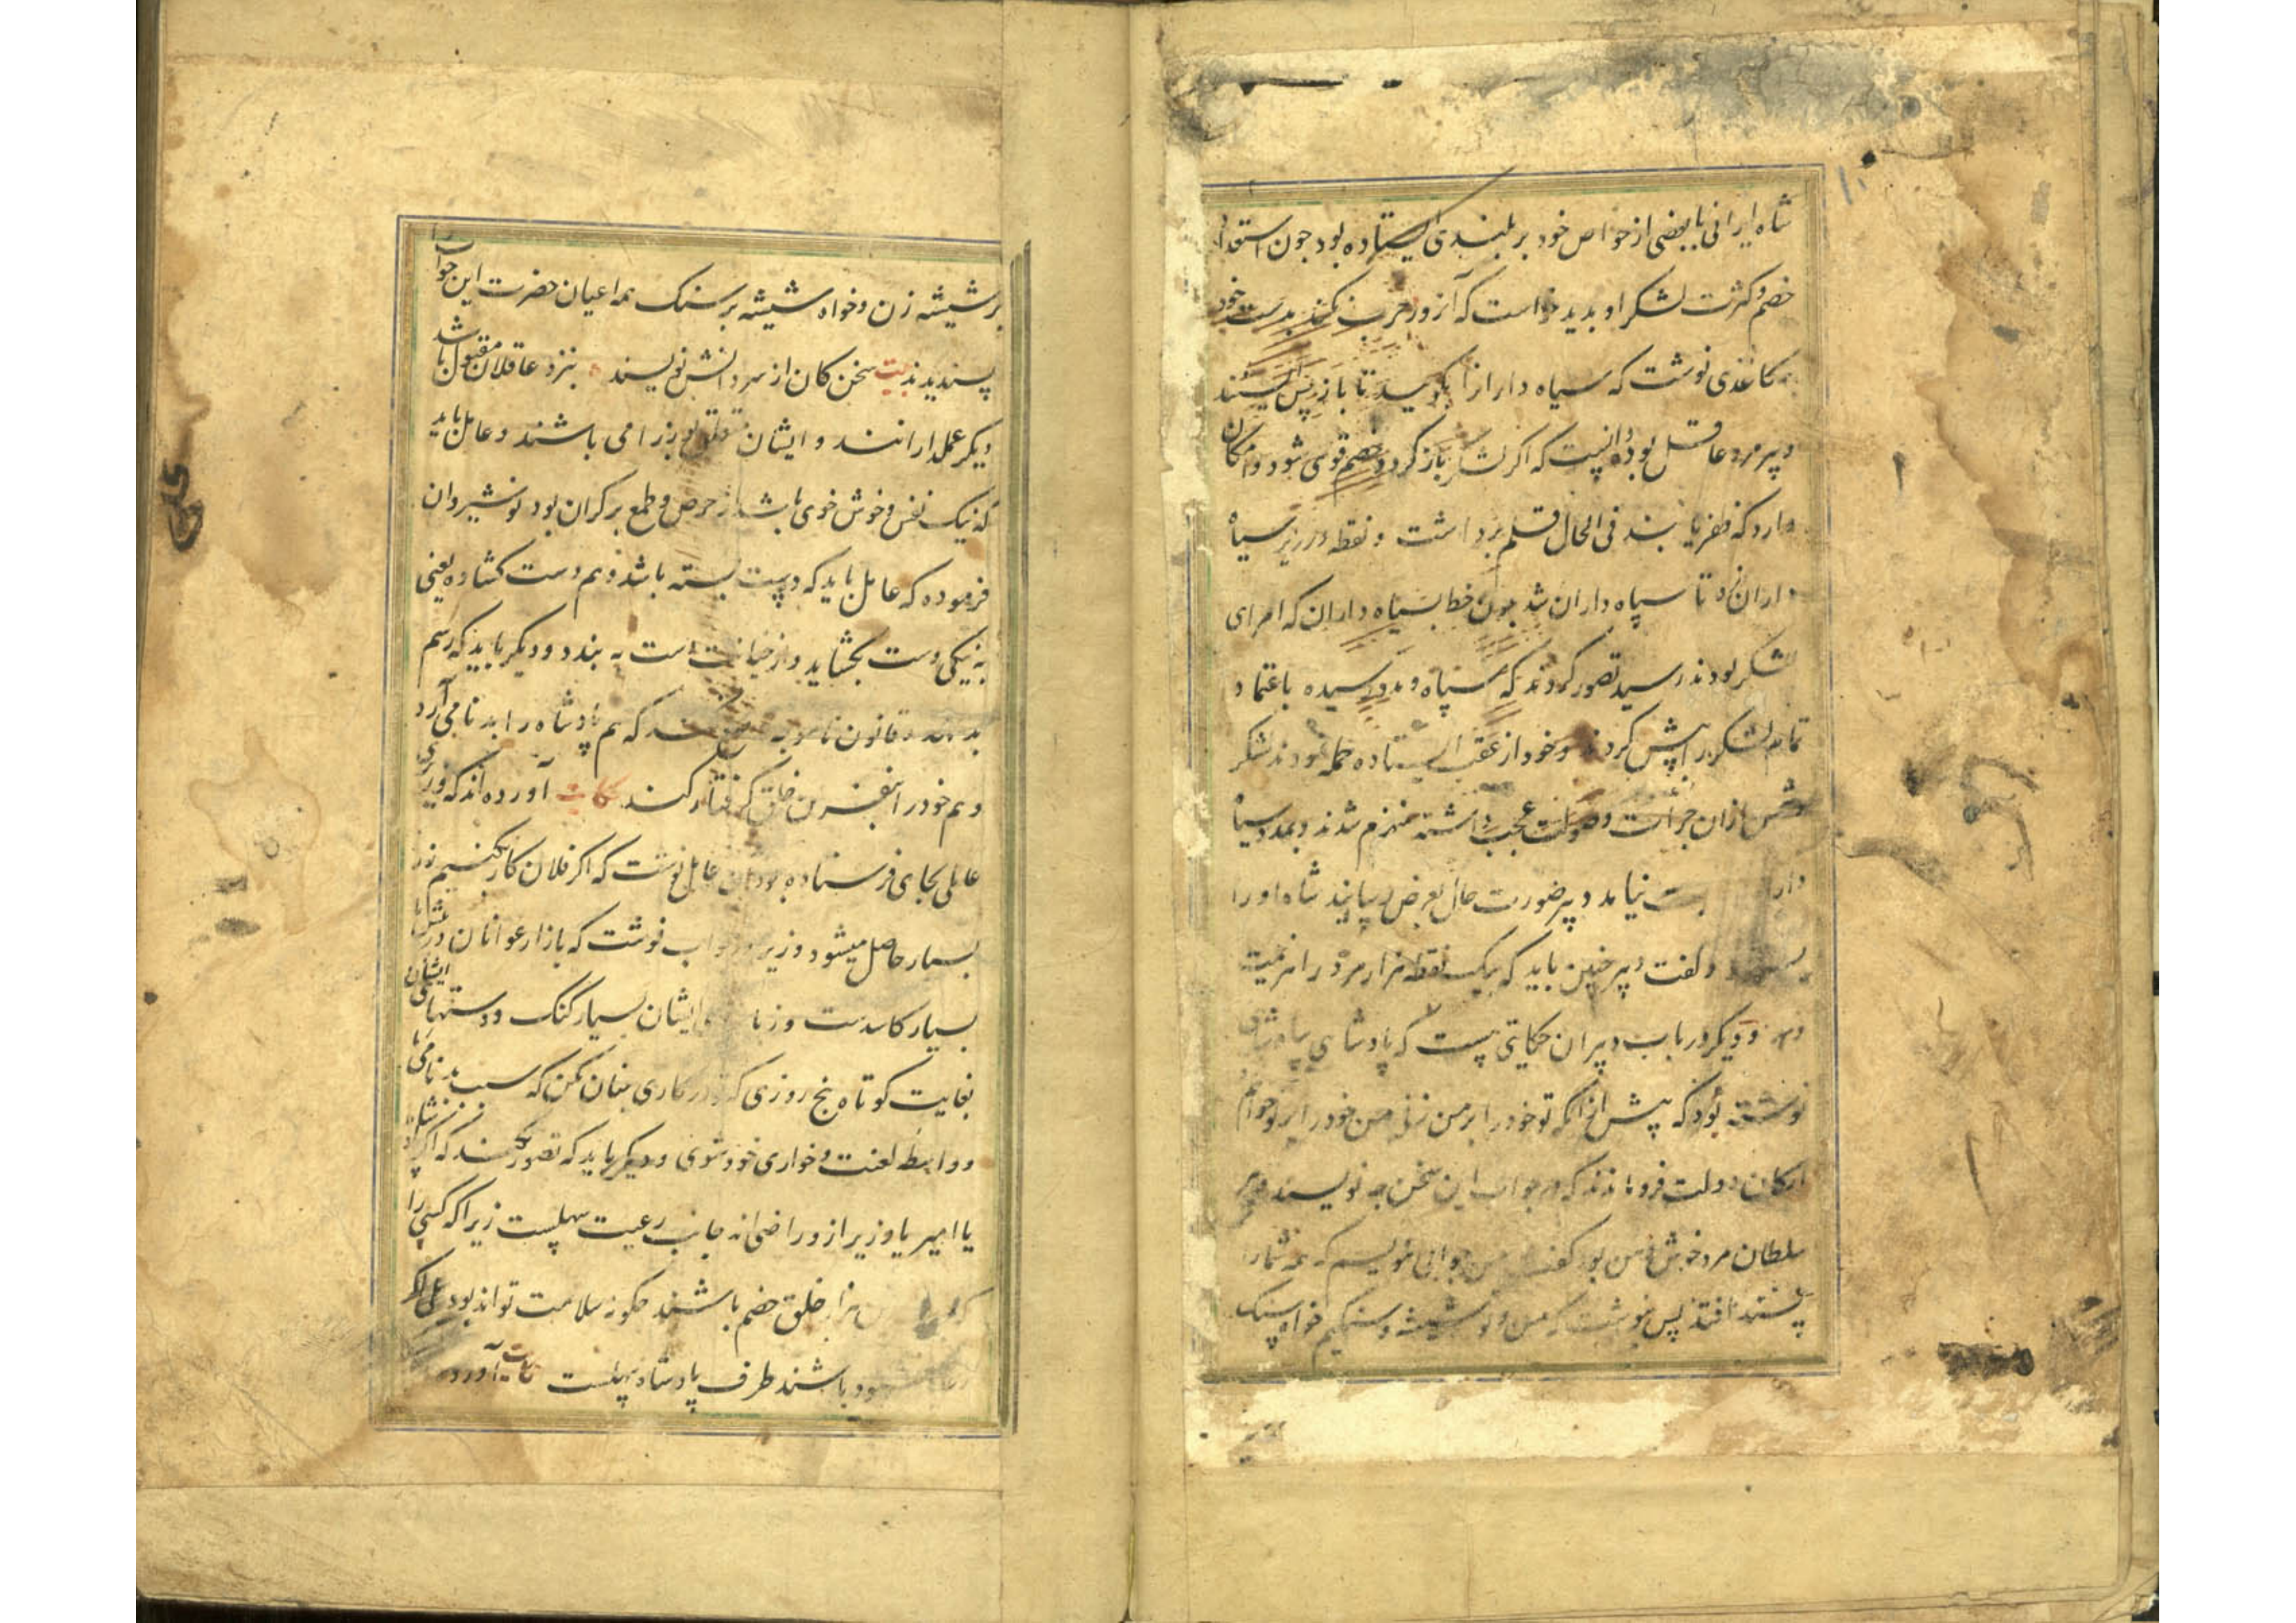 شاه ایرانی با بعضی از خواص خود بر بلندی ایستاده بود چون استعداد
خصم و کثرت لشکر او بدید خواست که آنروز حرب نکند بدست خود
کاغذی نوشت که سپاه دارانرا بگویید تا باز پس ایستند
دبیر مرد عاقل بود دانست که اگر لشکر باز گردد خصم قوی شود و امکان
دارد که ظفر یابند فی الحال قلم برداشت و نقطه در زیر سپاه
داران زد تا سپاه داران شد چون خط بسپاه داران که امرای
لشکر بودند رسید تصور کردند که سپاه و مدد رسیده باعتماد
تمام لشکر را پیش کردند و خود از عقب ایستاده حمله نمودند لشکر
دشمن ازان جرأت و صولت عجب داشته منهزم شدند و بمدد سپاه
نیامد دبیر صورت حال بعرض رسانید شاه او را
و گفت دبیر چنین باید که بیک نقطه هزار مرد را هزیمت
دهد و دیگر در باب دبیران حکایتی است که پادشاهی بپادشاهی
نوشته بود که پیش ازانکه تو خود را بر من زنی من خود را بر تو خواهم
ارکان دولت فروماندند که در جواب این سخن چه نویسند دبیر
سلطان مرد خوش بود گفت من جوابی نویسم که همه شما را
پسند افتد پس نوشت که من و تو شیشه و سنگیم خواه سنگ
بر شیشه زن و خواه شیشه بر سنگ همه اعیان حضرت این جواب را
پسندیدند بیت سخن کان از سر دانش نویسند بنزد عاقلان مقبول باشد
دیگر عملدارانند و ایشان می باشند و عامل باید
که نیک نفس و خوش خوی باشد از حرص و طمع بر کران بود نوشیروان
فرموده که عامل باید که دست بسته باشد و هم دست کشاده یعنی
به نیکی دست بگشاید و از خیانت دست به بندد و دیگر باید که رسم
بد و قانون که هم پادشاه را بدنامی آرد
و هم خود را بنفرین خلق گرفتار کند حکایت آورده اند که وزیری
عاملی بجای فرستاده بود آن عامل نوشت که اگر فلان کار کنیم زر
بسیار حاصل میشود وزیر در جواب نوشت که بازار عوانان در شهر ما
بسیار کاسدست و زبان ایشان بسیار گنگ و دستهای ایشان
بغایت کوتاه پنج روزی که در کاری چنان مکن که سبب بدنامی ما
و واسطه لعنت و خواری خود شوی و دیگر باید که تصور نکنند که اگر پادشاه
یا امیر یا وزیر ازو راضی اند جانب رعیت سهلست زیرا که کسی را
که هزار خلق خصم باشند چگونه سلامت تواند بود
باشند طرف پادشاه سهلست حکایت آورده